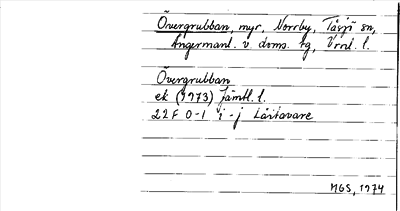 Övergrubban, myr, Norrby, Tåsjö sn,
Ångermanl. v. doms. sg, Vrnl. l.
Övergrubban
ek (1973) Jämtl. l.
22 F 0-1 i-j Låstavare
MGS, 1974